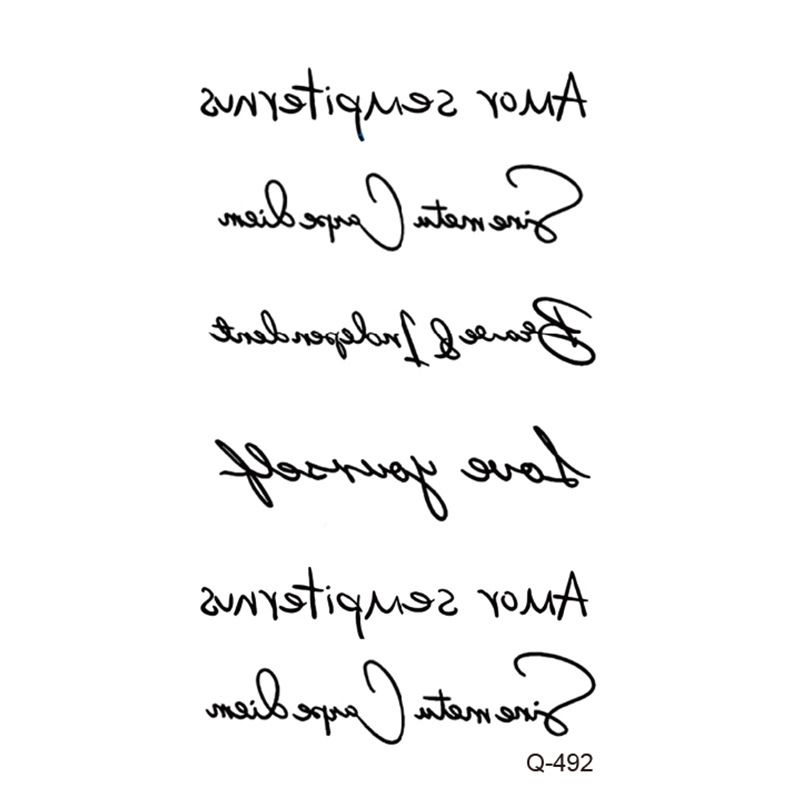 Amor sempiternus
Sine metu Carpe diem
Brave & Independent
Love yourself
Amor sempiternus
Sine metu Carpe diem
Q-492